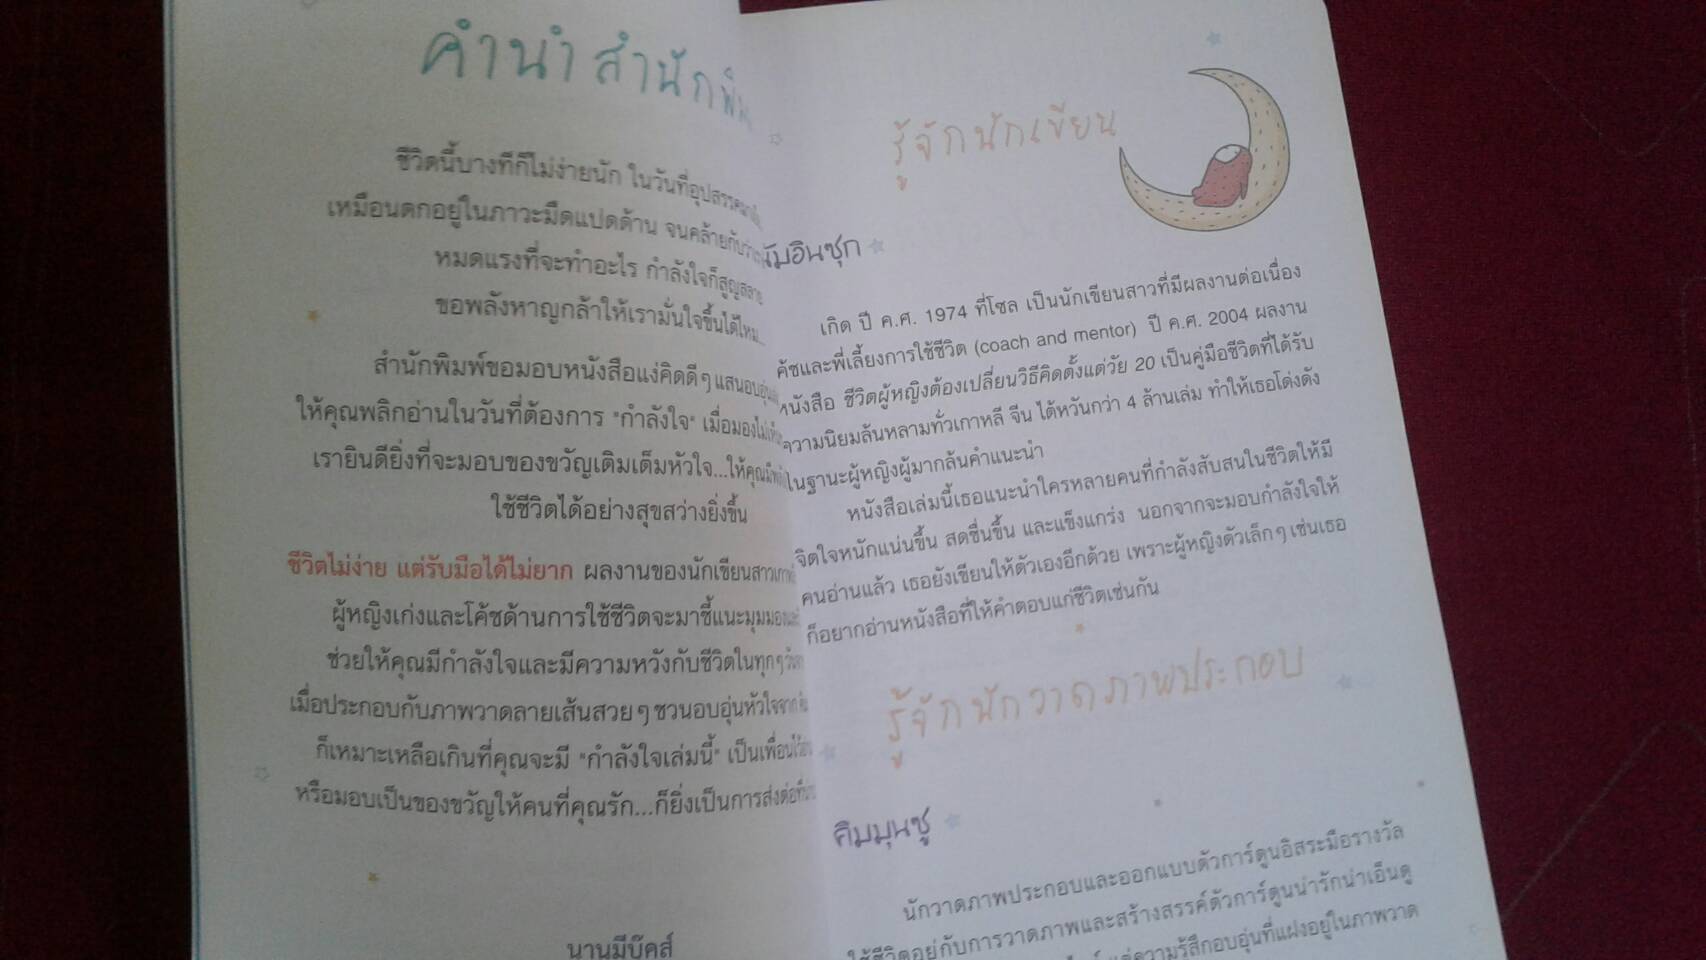 คำนำสำนักพิม
ชีวิตนี้บางทีก็ไม่ง่ายนัก ในวันที่อุปสรรค
เหมือนตกอยู่ในภาวะมืดแปดด้าน จนคล้ายกับว่า
หมดแรงที่จะทำอะไร กำลังใจก็สูญสลาย
ขอพลังหาญกล้าให้เรามั่นใจขึ้นได้ไหม...
สำนักพิมพ์ขอมอบหนังสือแง่คิดดีๆ แสนอบอุ่น
ให้คุณพลิกอ่านในวันที่ต้องการ "กำลังใจ" เมื่อมองไม่
เรายินดียิ่งที่จะมอบของขวัญเติมเต็มหัวใจ...ให้คุณ
ใช้ชีวิตได้อย่างสุขสว่างยิ่งขึ้น
ชีวิตไม่ง่าย แต่รับมือได้ไม่ยาก ผลงานของนักเขียนสาว
ผู้หญิงเก่งและโค้ชด้านการใช้ชีวิตจะมาชี้แนะมุมมอง
ช่วยให้คุณมีกำลังใจและมีความหวังกับชีวิตในทุกๆ
เมื่อประกอบกับภาพวาดลายเส้นสวยๆ ชวนอบอุ่นหัวใจจาก
ก็เหมาะเหลือเกินที่คุณจะมี "กำลังใจเล่มนี้" เป็นเพื่อน
หรือมอบเป็นของขวัญให้คนที่คุณรัก...ก็ยิ่งเป็นการส่งต่อ
นานมีบุ๊คส์
รู้จักนักเขียน
นัมอินซุก
เกิด ปี ค.ศ. 1974 ที่โซล เป็นนักเขียนสาวที่มีผลงานต่อเนื่อง
ค้ชและพี่เลี้ยงการใช้ชีวิต (coach and mentor) ปี ค.ศ. 2004 ผลงาน
หนังสือ ชีวิตผู้หญิงต้องเปลี่ยนวิธีคิดตั้งแต่วัย 20 เป็นคู่มือชีวิตที่ได้รับ
ความนิยมล้นหลามทั่วเกาหลี จีน ไต้หวันกว่า 4 ล้านเล่ม ทำให้เธอโด่งดัง
ในฐานะผู้หญิงผู้มากล้นคำแนะนำ
หนังสือเล่มนี้เธอแนะนำใครหลายคนที่กำลังสับสนในชีวิตให้มี
จิตใจหนักแน่นขึ้น สดชื่นขึ้น และแข็งแกร่ง นอกจากจะมอบกำลังใจให้
คนอ่านแล้ว เธอยังเขียนให้ตัวเองอีกด้วย เพราะผู้หญิงตัวเล็กๆ เช่นเธอ
ก็อยากอ่านหนังสือที่ให้คำตอบแก่ชีวิตเช่นกัน
รู้จักนักวาดภาพประกอบ
คิมมุนซู
นักวาดภาพประกอบและออกแบบตัวการ์ตูนอิสระมือรางวัล
ใช้ชีวิตอยู่กับการวาดภาพและสร้างสรรค์ตัวการ์ตูนน่ารักน่าเอ็นดู
แต่ความรู้สึกอบอุ่นที่แฝงอยู่ในภาพวาด